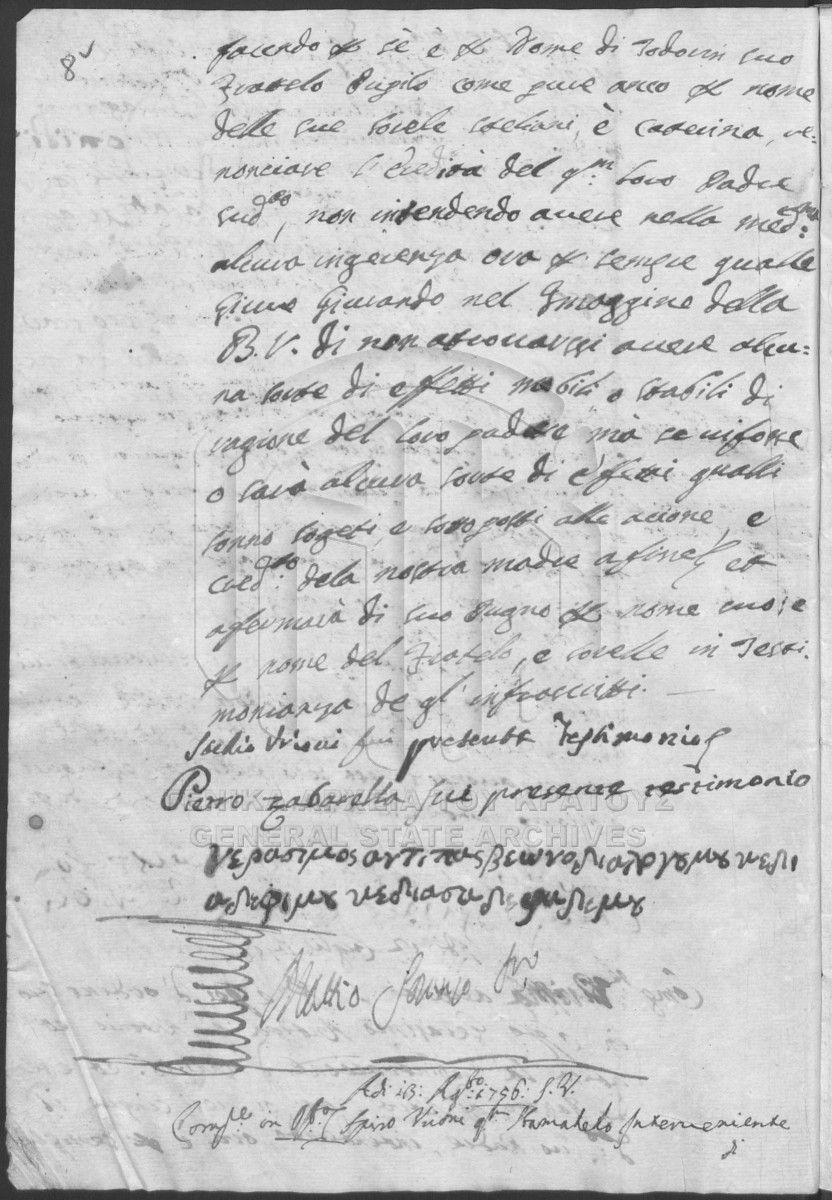 8v
facendo p sè è p Nome di Todorin suo
Fratelo Pupilo come pure anco p nome
delle sue sorele steliani, è Caterina, re=
nonciare l'Eredità del qm loro Padre
sudto, non intendendo avere nella medma:
alcuna ingerenza ora p sempre qualle
Giuro Giurando nel Imaggine della
B. V. di non atrouarssi avere alcu=
na sorte di effetti mobili o stabili di
ragione del loro padre mà se vi fosse
o sarà alcuna sorte di effetti qualli
sonno sogeti, e sottoposti alle acione, e
cred:to dela nostra madre et
afermarà di suo Pugno p nome suo; e
p nome del Fratelo, e sorelle in Testi:
monianza de gl' infrascritti.
Stellio Vrioni fui presente Testimonio
Pierro Zabarella fui presente testimonio
γερασιμος αντιπας βεωνο δια λργυ μȣ κε δι
αδεφι μȣ κε δια σα δεφαδε μȣ
Adi 13: 1756: S.V.
Compe in Offo Spiro Vrioni qm Stamatelo Interueniente
di
ΓΕΝΙΚΑ ΑΡΧΕΙΑ ΤΟΥ ΚΡΑΤΟΥΣ
GENERAL STATE ARCHIVES